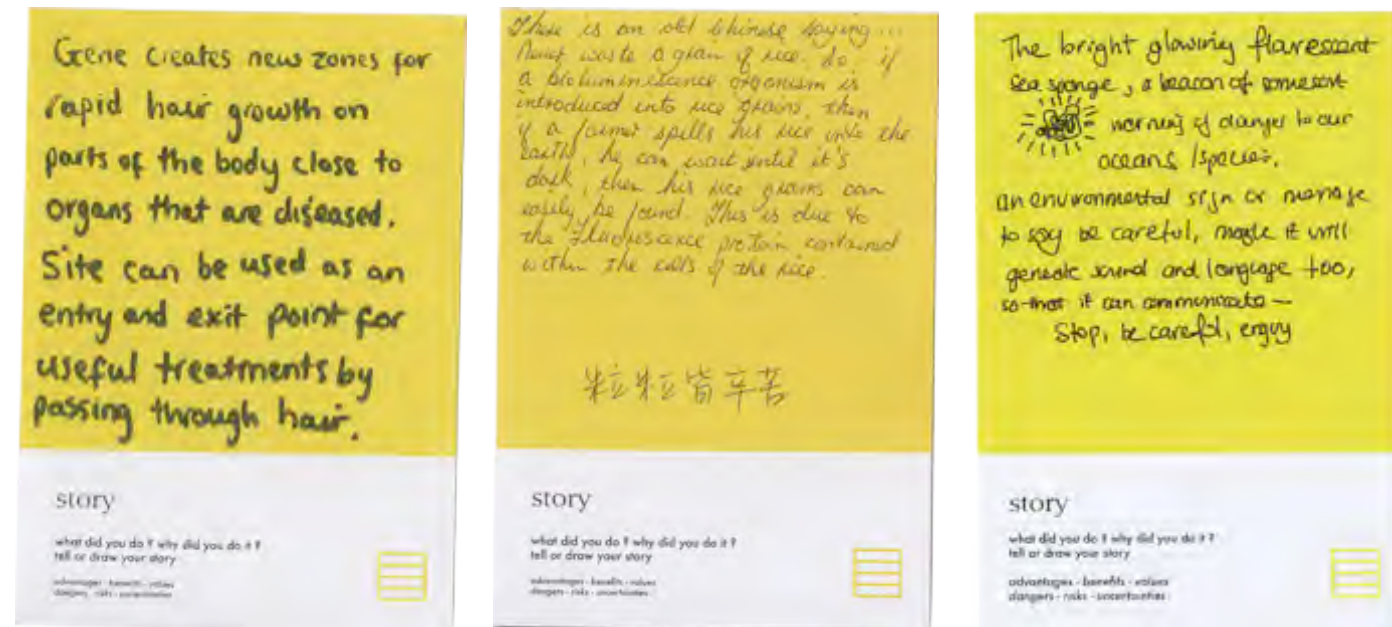 Gene creates new zones for
rapid hair growth on
parts of the body close to
organs that are diseased.
Site can be used as an
entry and exit point for
useful treatments by
passing through hair.
story
what did you do ? why did you do it ?
tell or draw your story
advantages - benefits - values
dangers - risks - uncertainties
There is an old Chinese saying...
Never waste a grain of rice. So, if
a bioluministance organism is
introduced into rice grains, then
if a farmer spills his rice into the
earth, he can wait until it's
dark, then his rice grains can
easily be found. This is due to
the Fluorescence protein contained
within the cells of the rice.
粒粒皆辛苦
story
what did you do ? why did you do it ?
tell or draw your story
advantages - benefits - values
dangers - risks - uncertainties
The bright glowing
sea sponge, a beacon of
warning of danger to our
oceans /species.
an environmental sign or message
to say be careful, maybe it will
generate sound and language too,
so that it can communicate —
Stop, be careful, enjoy
story
what did you do ? why did you do it ?
tell or draw your story
advantages - benefits - values
dangers - risks - uncertainties